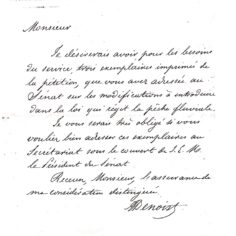 Monsieur
Je désirerais avoir pour les besoins
du service, trois exemplaires imprimés de
la pétition, que vous avez adressée au
Sénat sur les modifications à introduire
dans la loi qui régit la pêche fluviale.
Je vous serai très obligé si vous
voulez bien adresser ces exemplaires au
Secrétariat sous le couvert de S. E. M.
le Président du Sénat
Recevez, Monsieur, l'assurance de
ma considération distinguée
Benoist